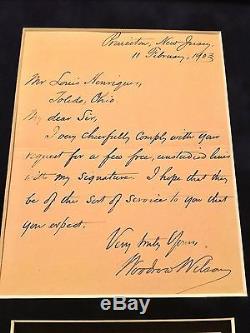 Princeton, New Jersey,
11 February, 1903
Mr Louis Henriques,
Toledo, Ohio
My dear Sir,
I very cheerfully comply with your
request for a few free, unstudied lines
with my signature. I hope that they
be of the sort of service to you that
you expect.
Very truly Yours,
Woodrow Wilson